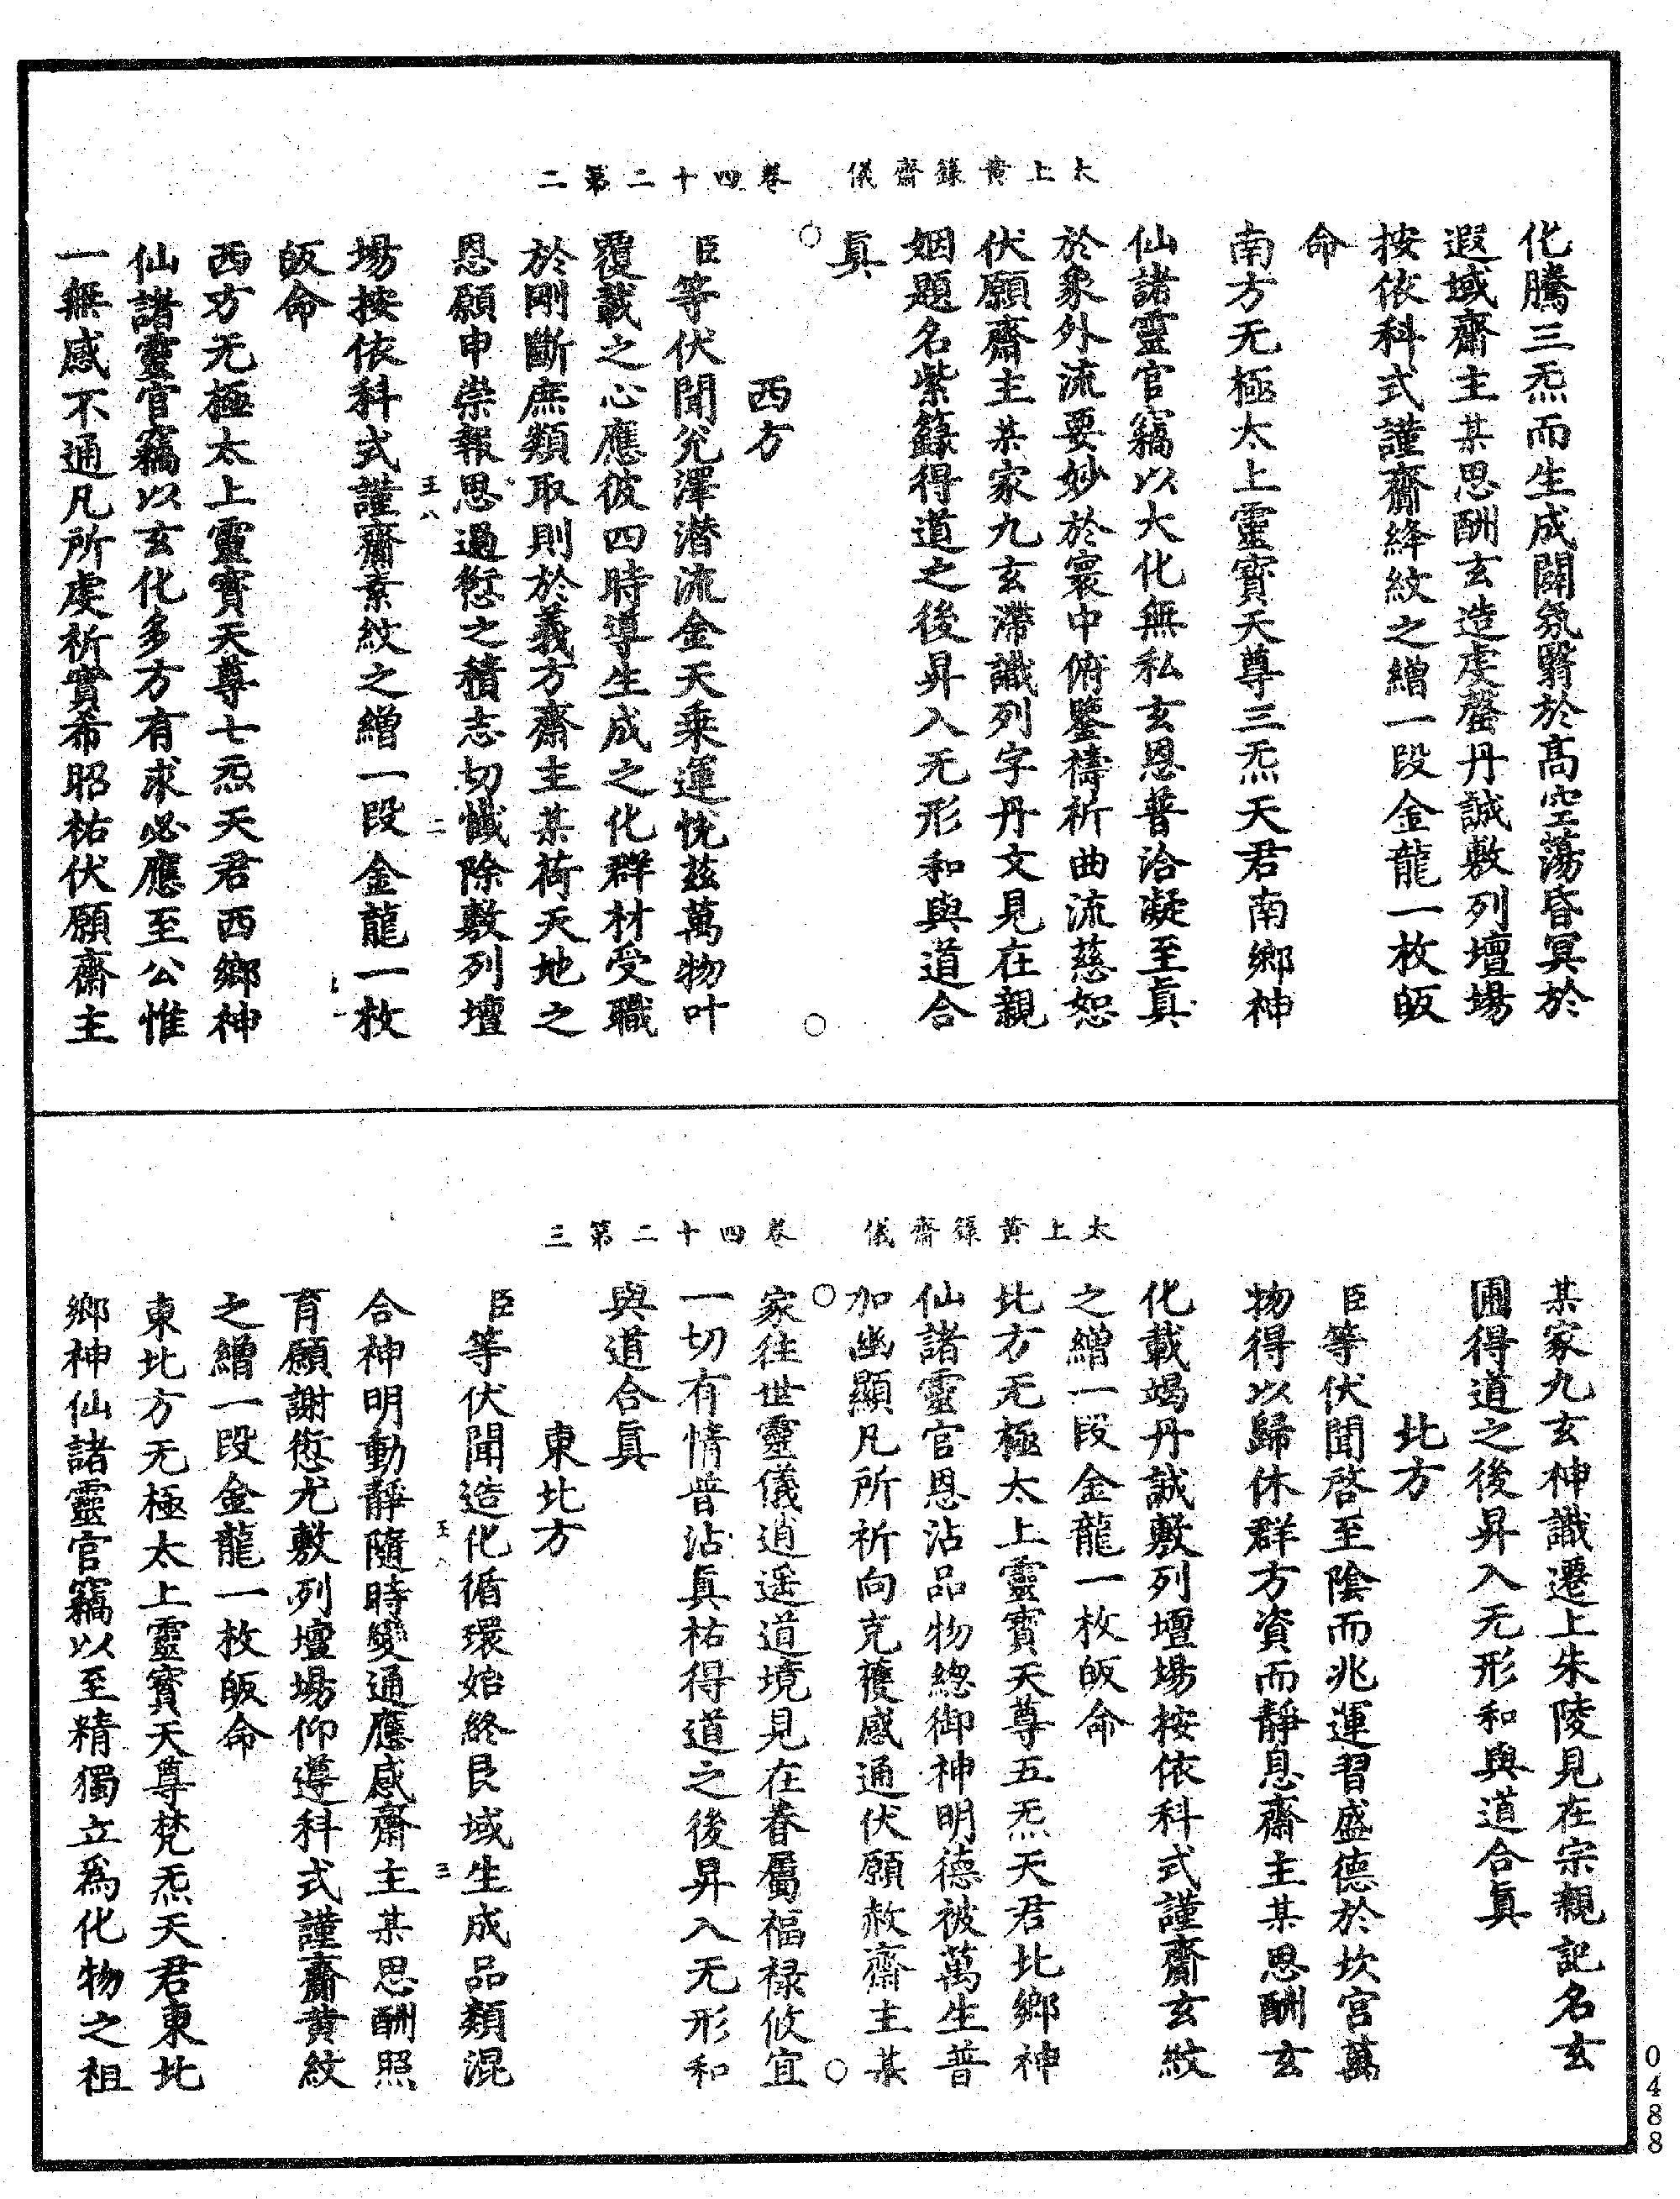 太上黃籙齋儀　卷四十二第二
化騰三炁而生成闢氛翳於高空蕩昏冥於
遐域齋主某思酬玄造虔罄丹誠敷列壇場
按依科式謹齎絳紋之繒一段金龍一枚皈
命
南方无極太上靈寶天尊三炁天君南鄉神
仙諸靈官竊以大化無私玄恩普洽凝至眞
於象外流要妙於寰中俯鑒禱祈曲流慈恕
伏願齋主某家九玄滯識列字丹文見在親
姻題名紫籙得道之後昇入无形和與道合
眞
西方
臣等伏聞兌澤潛流金天乘運恱茲萬物叶
覆載之心應彼四時導生成之化群材受職
於剛斷庶類取則於義方齋主某荷天地之
恩願申崇報思過愆之積志切懺除敷列壇
王八　二
場按依科式謹齎素紋之繒一段金龍一枚
皈命
西方无極太上靈寶天尊七炁天君西鄉神
仙諸靈官竊以玄化多方有求必應至公惟
一無感不通凡所虔祈實希昭祐伏願齋主
太上黃籙齋儀　卷四十二第三
某家九玄神識遷上朱陵見在宗親記名玄
圃得道之後昇入无形和與道合眞
北方
臣等伏聞啓至陰而兆運習盛德於坎宮萬
物得以歸休群方資而靜息齋主某恩酬玄
化載竭丹誠敷列壇場按依科式謹齎玄紋
之繒一段金龍一枚皈命
北方无極太上靈寶天尊五炁天君北鄉神
仙諸靈官恩沾品物總御神明德被萬生普
加幽顯凡所祈向克獲感通伏願赦齋主某
家往世靈儀逍遥道境見在眷屬福禄攸宜
一切有情普沾眞祐得道之後昇入无形和
與道合眞
東北方
臣等伏聞造化循環始終艮域生成品類混
王八　三
合神明動靜隨時變通應感齋主某思酬照
育願謝愆尤敷列壇場仰遵科式謹齎黃紋
之繒一段金龍一枚皈命
東北方无極太上靈寶天尊梵炁天君東北
鄉神仙諸靈官竊以至精獨立爲化物之祖
0488